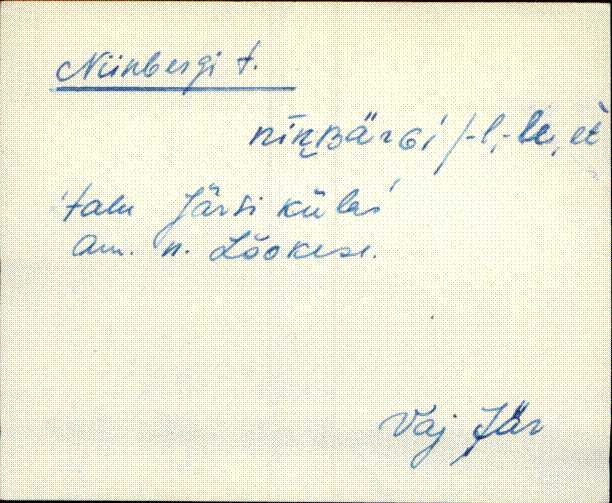 Niinbergi t.
nīņBärGi /-l, -le, et
talu Järsi külas
am. n. Lõokese.
Vaj Jär